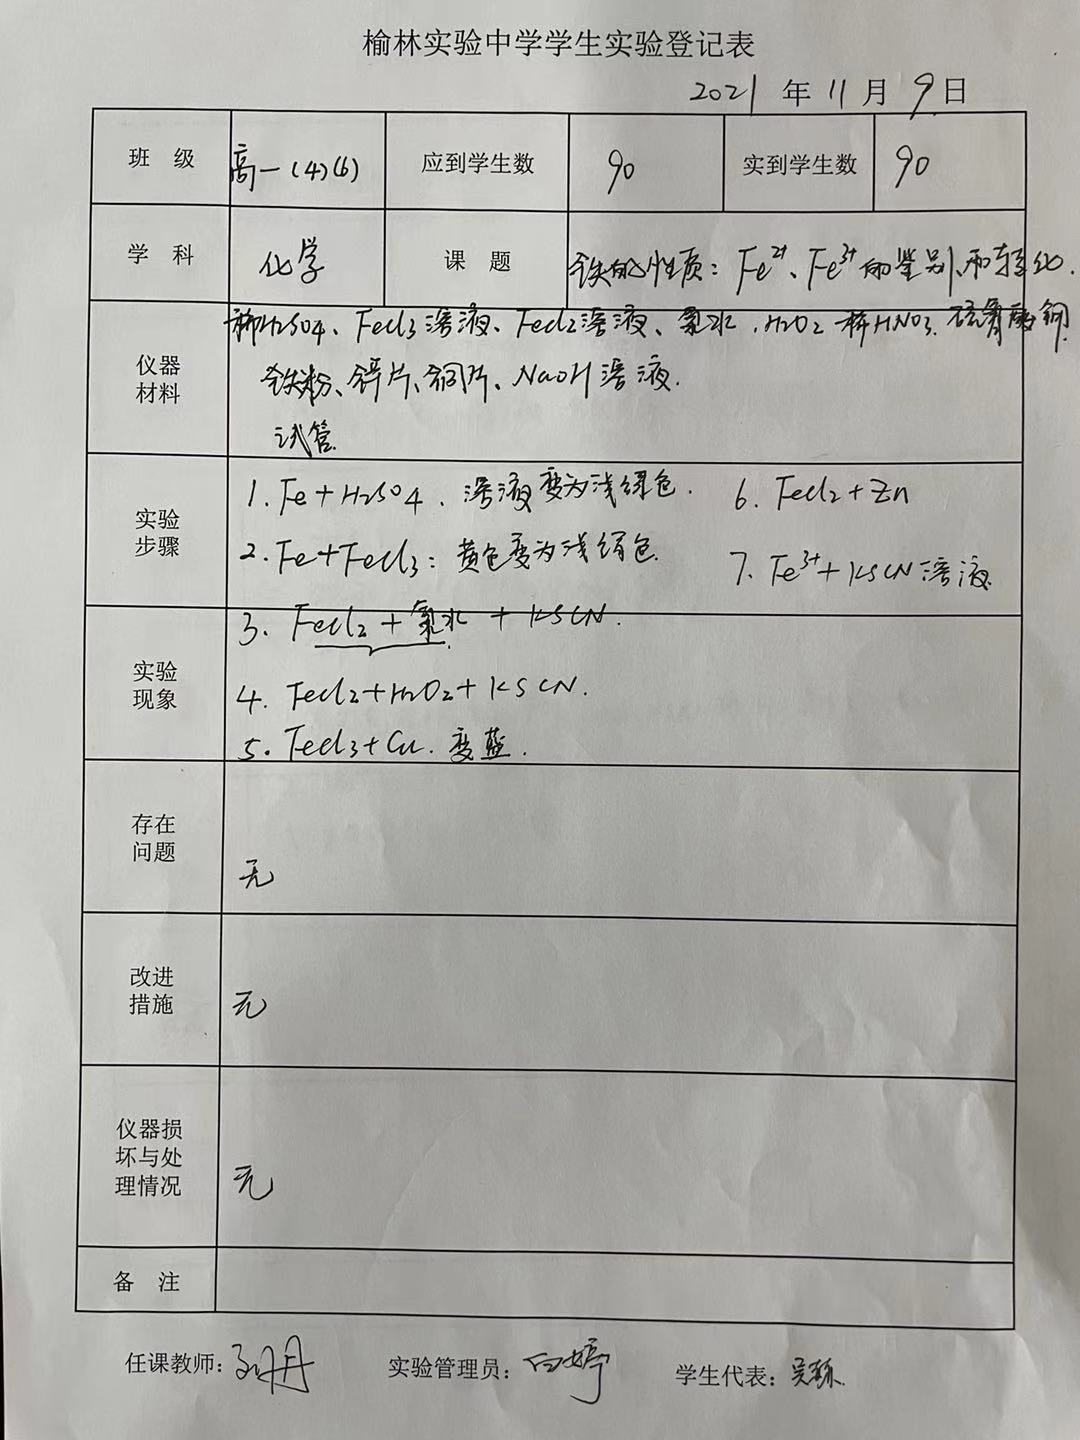 榆林实验中学学生实验登记表
2021 年 11 月 9 日
班 级 高一(4)(6) 应到学生数 90 实到学生数 90
学 科 化学 课 题 铁的性质：Fe²⁺、Fe³⁺的鉴别和转化.
仪器材料
稀H2SO4、FeCl3溶液、FeCl2溶液、氯水、H2O2 稀HNO3.
铁粉、锌片、铜片、NaOH溶液.
试管
实验步骤
1. Fe+H2SO4. 溶液变为浅绿色. 6. FeCl2+Zn
2. Fe+FeCl3：黄色变为浅绿色. 7. Fe³⁺+KSCN溶液
实验现象
3. FeCl2+氯水+KSCN.
4. FeCl2+H2O2+KSCN.
5. FeCl3+Cu. 变蓝.
存在问题
无
改进措施
无
仪器损坏与处理情况
无
备 注
任课教师： 实验管理员：白婷 学生代表：